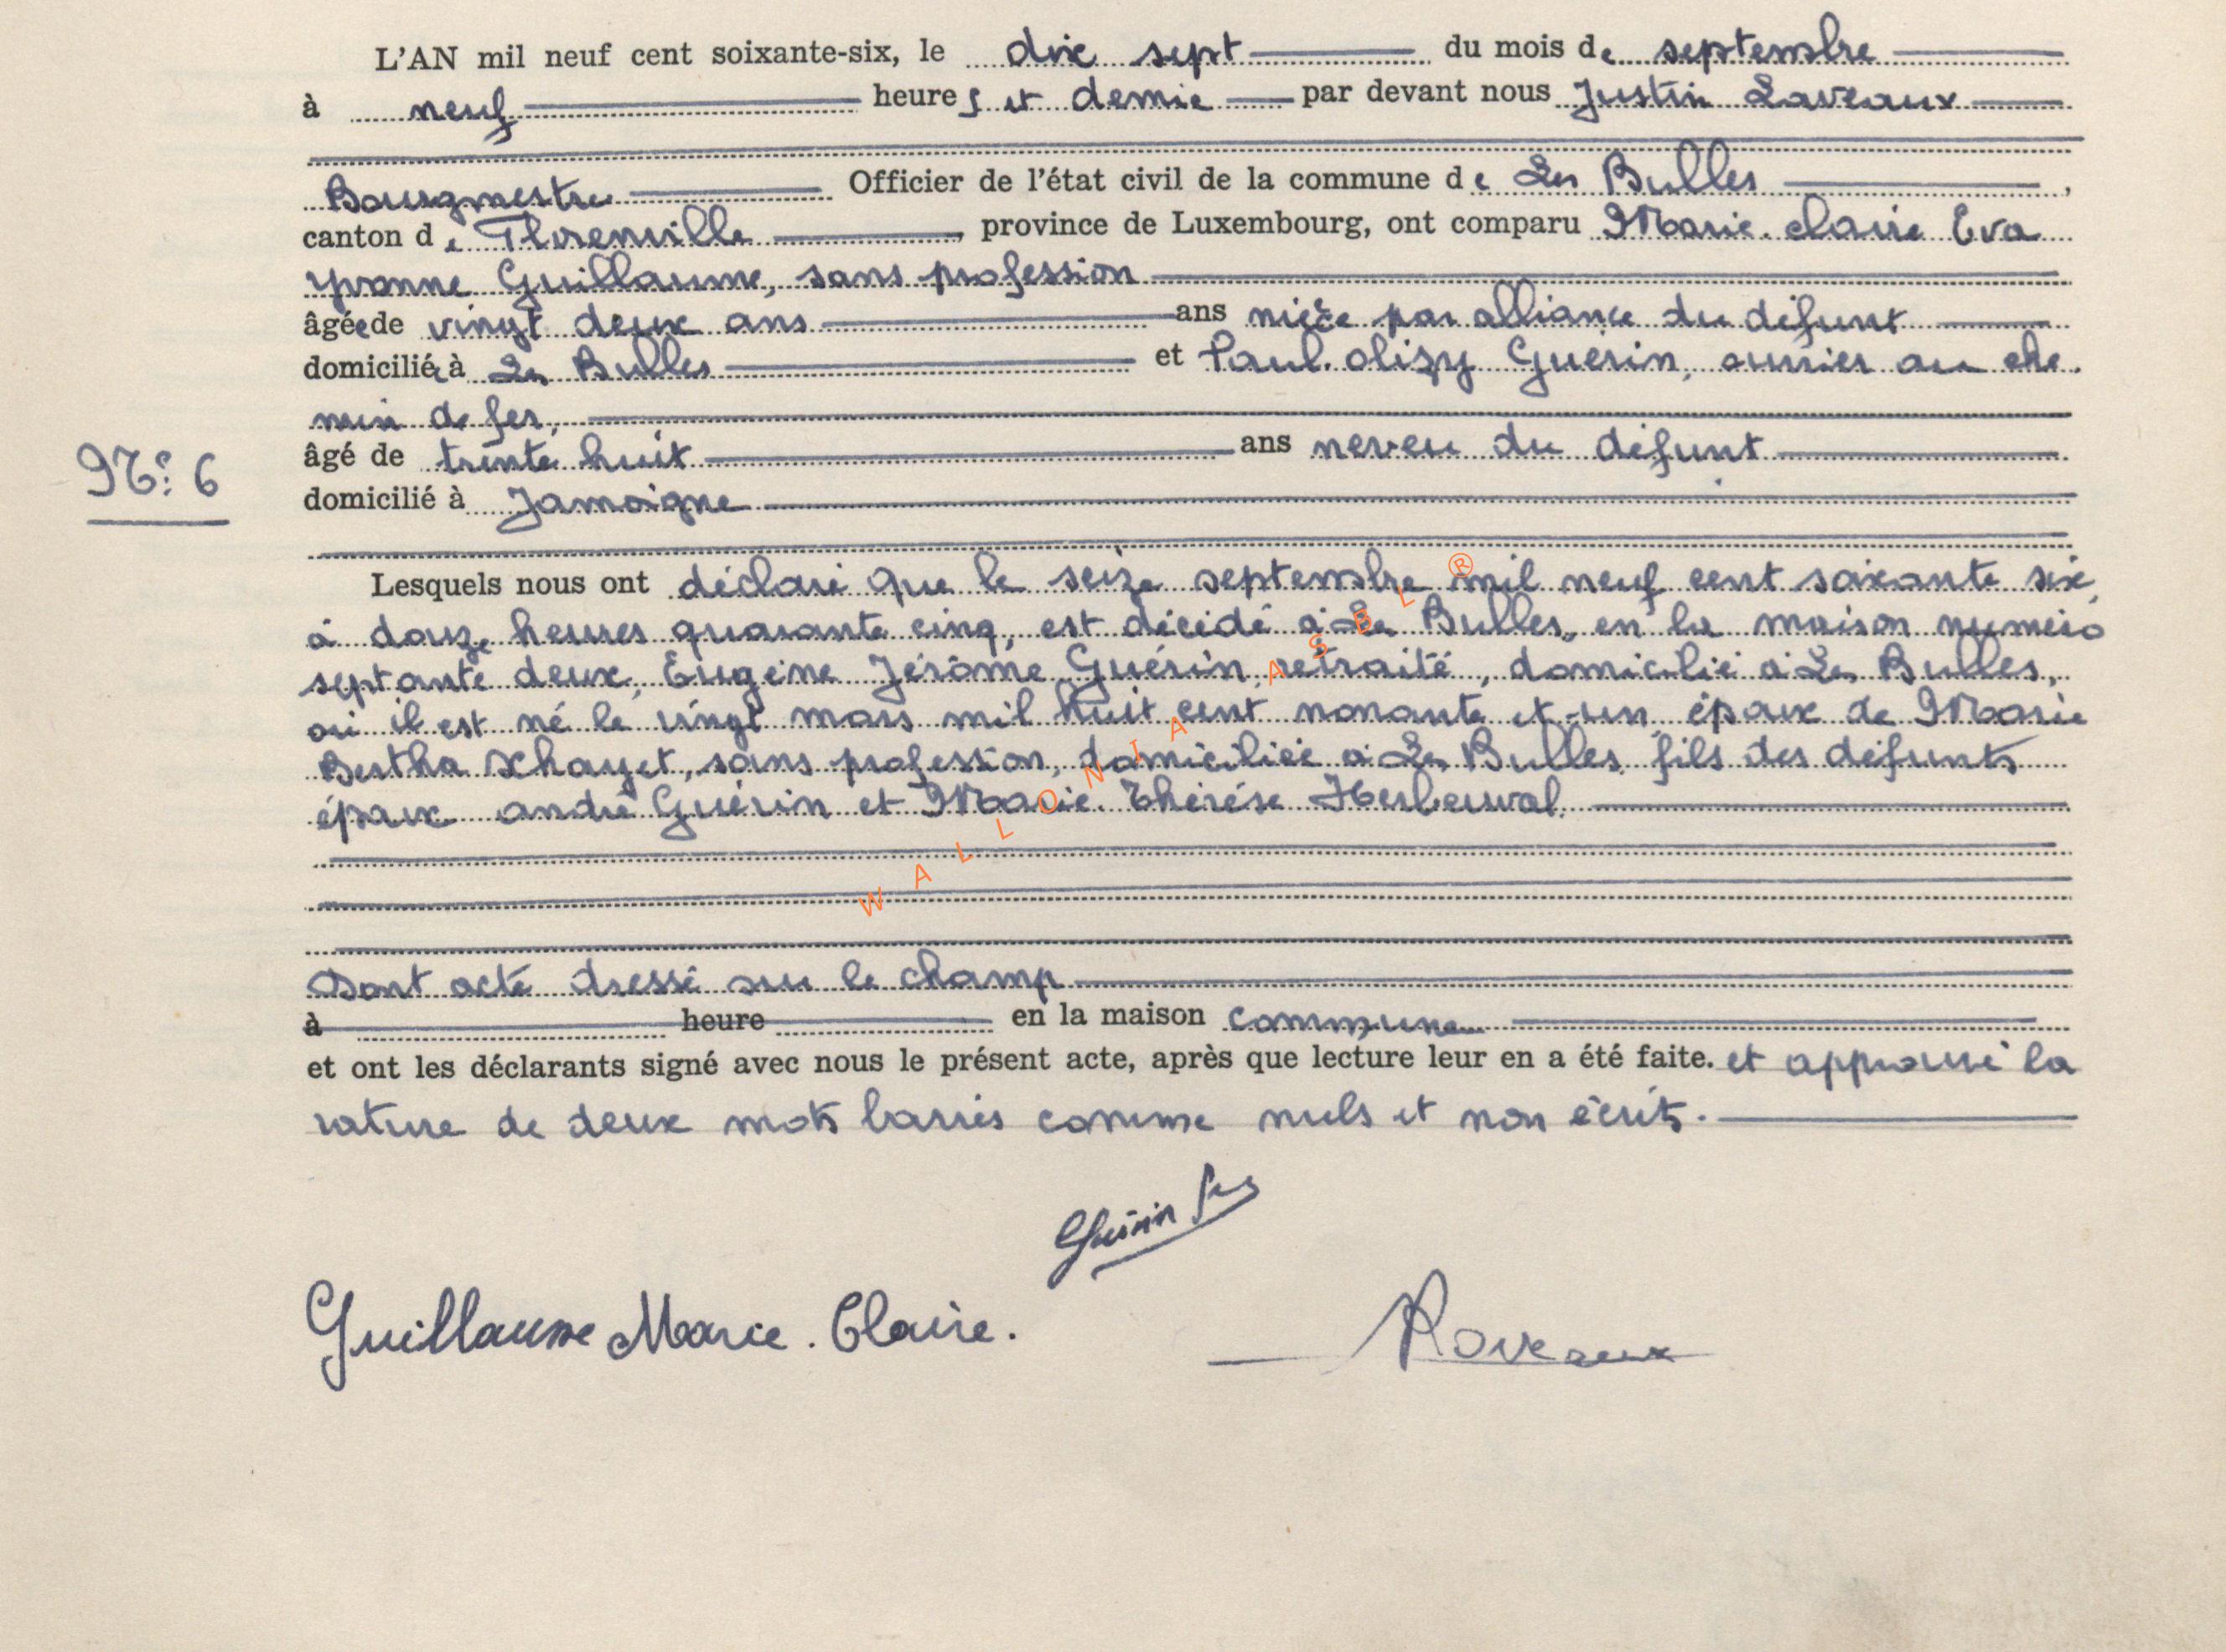 L'AN mil neuf cent soixante-six, le dix sept du mois de septembre
à neuf heures et demie par devant nous Justin Laveaux
Bourgmestre Officier de l'état civil de la commune de Les Bulles,
canton de Florenville, province de Luxembourg, ont comparu Marie-Claire Eva
Yvonne Guillaume, sans profession
âgée de vingt deux ans ans nièce par alliance du défunt
domiciliée à Les Bulles et Paul Olizy Guérin, ouvrier au che-
min de fer,
N° 6
âgé de trente huit ans neveu du défunt
domicilié à Jamoigne
Lesquels nous ont déclaré que le seize septembre mil neuf cent soixante six,
à douze heures quarante cinq, est décédé à Les Bulles, en la maison numéro
septante deux, Eugène Jérôme Guérin, retraité, domicilié à Les Bulles,
où il est né le vingt mars mil huit cent nonante et un, époux de Marie
Bertha Schayet, sans profession, domiciliée à Les Bulles, fils des défunts
époux André Guérin et Marie Thérèse Herbeuval.
WALLONIA ASBL ®
Dont acte dressé sur le champ
à heure en la maison communale
et ont les déclarants signé avec nous le présent acte, après que lecture leur en a été faite. et approuvé la
rature de deux mots barrés comme nuls et non écrits.
Guérin
Guillaume Marie-Claire.
Laveaux